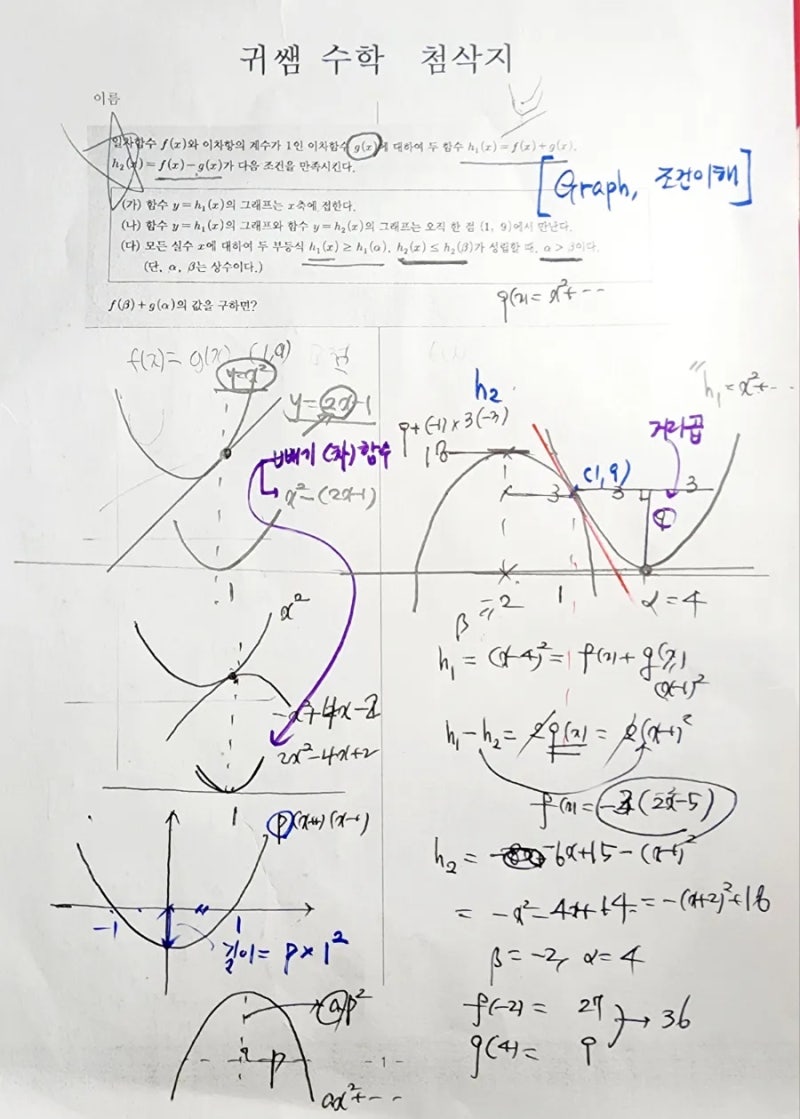 귀쌤 수학 첨삭지
이름
일차함수 f(x)와 이차항의 계수가 1인 이차함수 g(x)에 대하여 두 함수 h₁(x)=f(x)+g(x),
h₂(x)=f(x)-g(x)가 다음 조건을 만족시킨다.
[Graph, 조건이해]
(가) 함수 y=h₁(x)의 그래프는 x축에 접한다.
(나) 함수 y=h₁(x)의 그래프와 함수 y=h₂(x)의 그래프는 오직 한 점 (1, 9)에서 만난다.
(다) 모든 실수 x에 대하여 두 부등식 h₁(x)≥h₁(α), h₂(x)≤h₂(β)가 성립할 때, α>β이다.
(단, α, β는 상수이다.)
g(x)=x²+--
f(β)+g(α)의 값을 구하면?
f(x)=g(x) (1,9)
y=x²
y=2x-1
빼기 (차) 함수
x²-(2x-1)
1
x²
2x²-4x+2
1
p(x+1)(x-1)
-1
1
길이= p×1²
ap²
p
ax²+--
h₂
h₁=x²+--
9+(-1)×3(-3)
18
거리곱
(1,9)
3
3
3
β=-2
1
α=4
h₁=(x-4)²=f(x)+g(x)
(x-1)²
h₁-h₂=2g(x)=2(x-1)²
(2x-5)
-6x+15-(x-1)²
=-x²-4x+14=-(x+2)²+18
β=-2, α=4
f(-2)= 27
→36
g(4)= 9
-1-